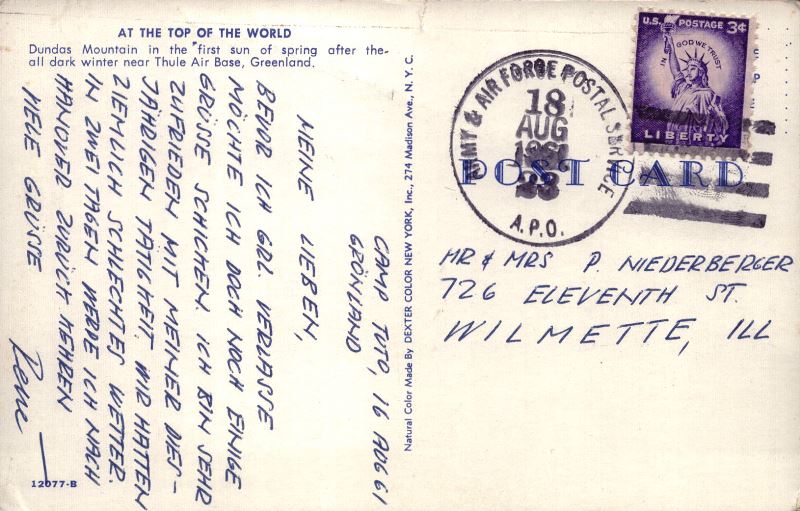 AT THE TOP OF THE WORLD
Dundas Mountain in the first sun of spring after the-
all dark winter near Thule Air Base, Greenland.
CAMP TUTO, 16 AUG 61
GRÖNLAND
MEINE LIEBEN,
BEVOR ICH GRL. VERLASSE
MÖCHTE ICH DOCH NOCH EINIGE
GRÜSSE SCHICKEN. ICH BIN SEHR
ZUFRIEDEN MIT MEINER DIES-
JÄHRIGEN TÄTIGKEIT. WIR HATTEN
ZIEMLICH SCHLECHTES WETTER.
IN ZWEI TAGEN WERDE ICH NACH
HANOVER ZURÜCK KEHREN
VIELE GRÜSSE
Rene
12077-B
Natural Color Made By DEXTER COLOR NEW YORK, Inc., 274 Madison Ave., N. Y. C.
U.S. POSTAGE 3¢
IN GOD WE TRUST
LIBERTY
ARMY & AIR FORCE POSTAL SERVICE
18
AUG
1961
23
A.P.O.
POST CARD
MR & MRS P. NIEDERBERGER
726 ELEVENTH ST.
WILMETTE, ILL